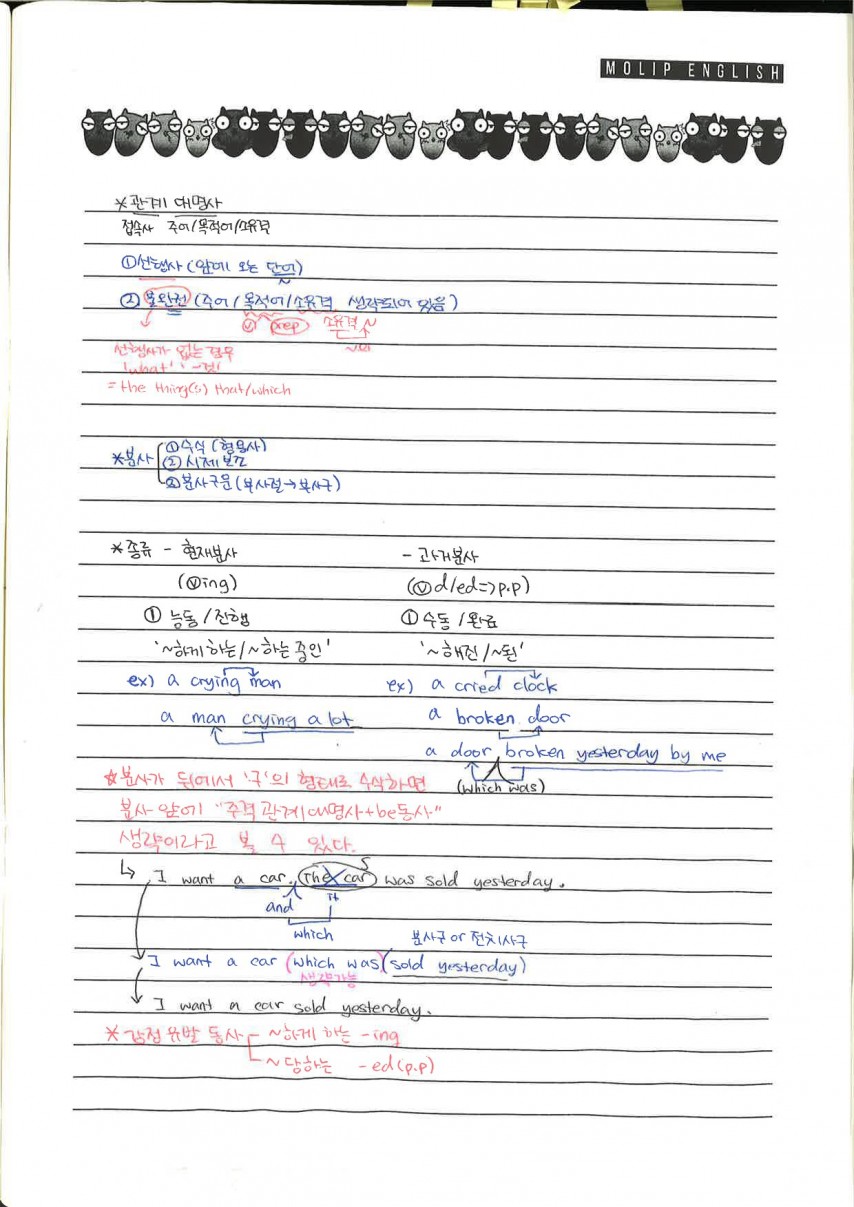 MOLIP ENGLISH
*관계 대명사
접속사 주어/목적어/소유격
①선행사 (앞에 오는 단어)
②불완전 (주어/목적어/소유격 생략되어 있음)
ⓥ prep 소유격~
선행사가 없는 경우
'what' '~것'
= the thing(s) that/which
①수식 (형용사)
*분사 ②시제 보조
③분사구문 (부사절→부사구)
*종류 - 현재분사 - 과거분사
(ⓥing) (ⓥd/ed=>p.p)
① 능동/진행 ① 수동/완료
'~하게 하는/~하는 중인' '~해진/~된'
ex) a crying man ex) a cried clock
a man crying a lot a broken door
a door broken yesterday by me
(which was)
☆분사가 뒤에서 '구'의 형태로 수식하면
분사 앞에 "주격 관계대명사+be동사"
생략이라고 볼 수 있다.
↳ I want a car. (The car) was sold yesterday.
S
and it
which 분사구 or 전치사구
I want a car (which was) (sold yesterday)
생략가능
I want a car sold yesterday.
* 감정 유발 동사 ~하게 하는 -ing
~당하는 -ed(p.p)